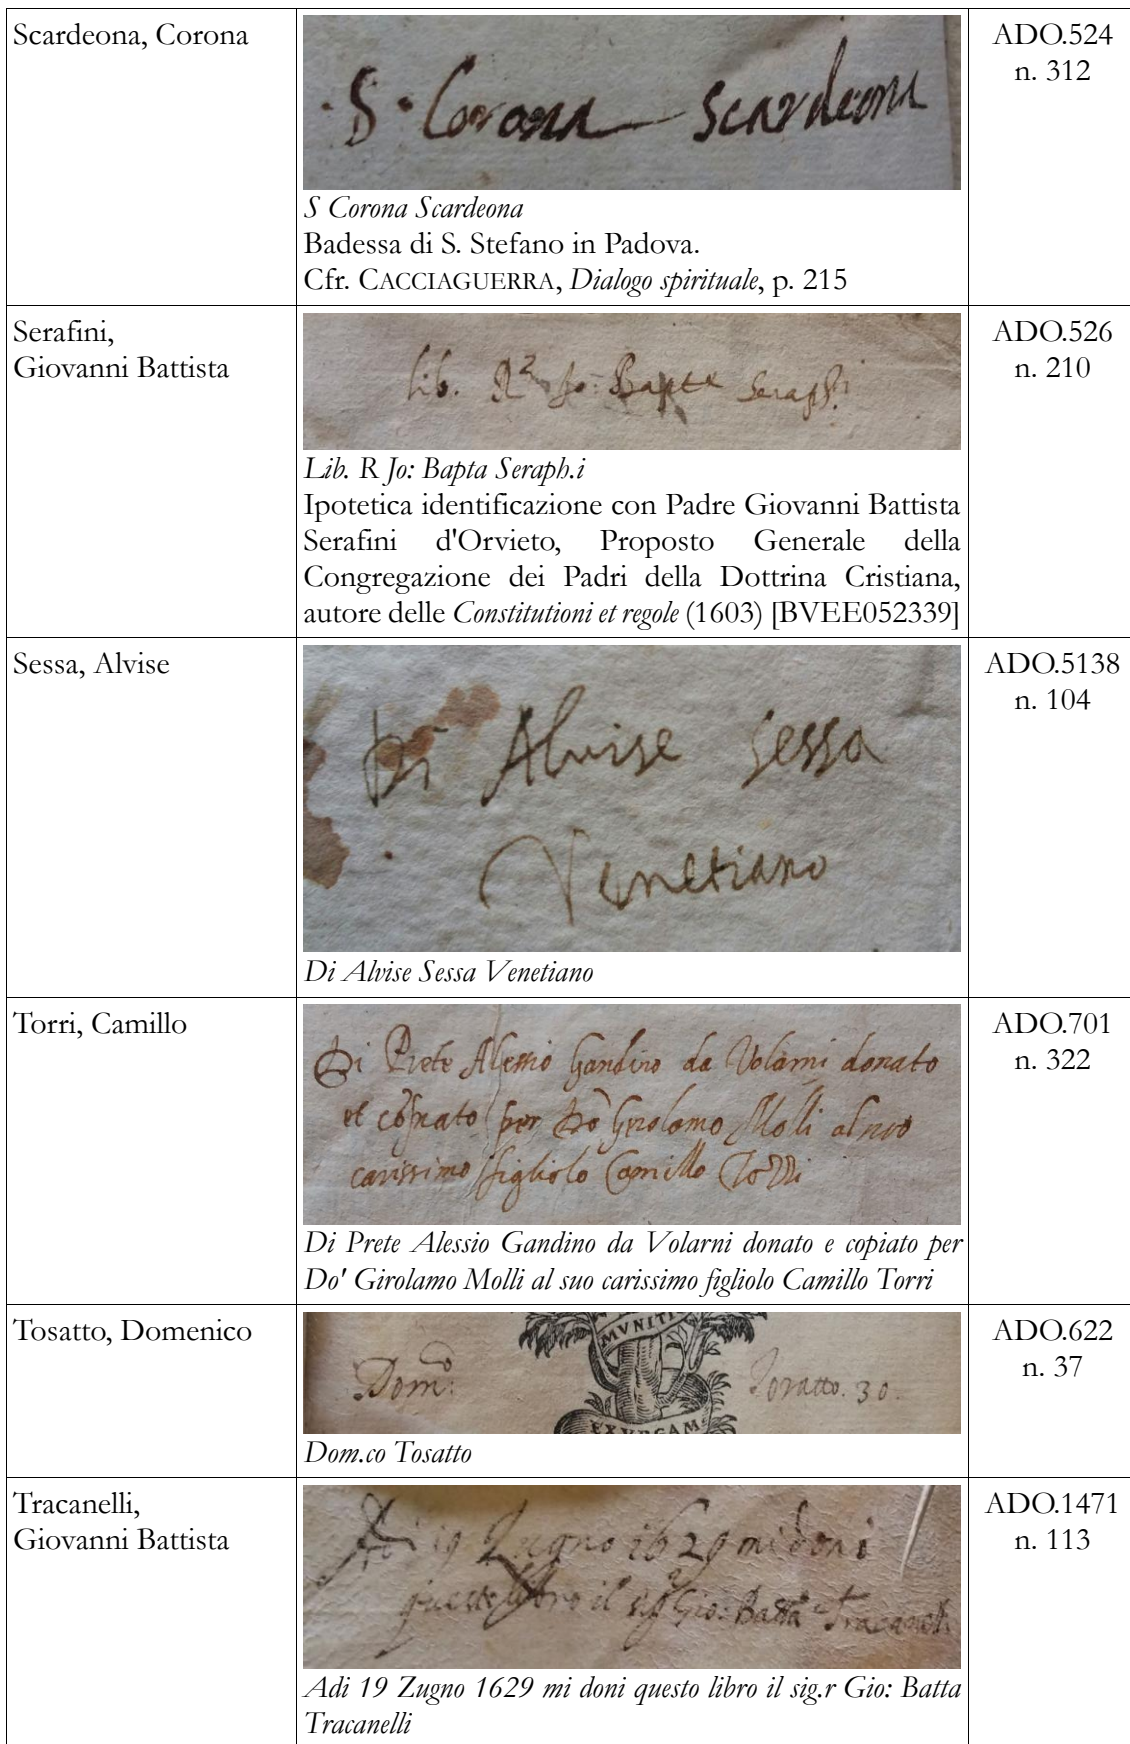 Scardeona, Corona
· S · Corona Scardeona
S Corona Scardeona
Badessa di S. Stefano in Padova.
Cfr. CACCIAGUERRA, Dialogo spirituale, p. 215
ADO.524
n. 312
Serafini,
Giovanni Battista
lib. R Jo: Bapte Seraph.i
Lib. R Jo: Bapta Seraph.i
Ipotetica identificazione con Padre Giovanni Battista
Serafini d'Orvieto, Proposto Generale della
Congregazione dei Padri della Dottrina Cristiana,
autore delle Constitutioni et regole (1603) [BVEE052339]
ADO.526
n. 210
Sessa, Alvise
Di Alvise Sessa
Venetiano
Di Alvise Sessa Venetiano
ADO.5138
n. 104
Torri, Camillo
Di Prete Alessio Gandino da Volarni donato
et per Do Girolamo Molli al suo
carissimo figliolo Camillo Torri
Di Prete Alessio Gandino da Volarni donato e copiato per
Do' Girolamo Molli al suo carissimo figliolo Camillo Torri
ADO.701
n. 322
Tosatto, Domenico
MVNITI
Dom.co Tosatto. 30.
EXVRGAM
Dom.co Tosatto
ADO.622
n. 37
Tracanelli,
Giovanni Battista
Adi 19 Zugno 1629 mi doni
questo libro il sig.r Gio: Batta Tracanelli
Adi 19 Zugno 1629 mi doni questo libro il sig.r Gio: Batta
Tracanelli
ADO.1471
n. 113